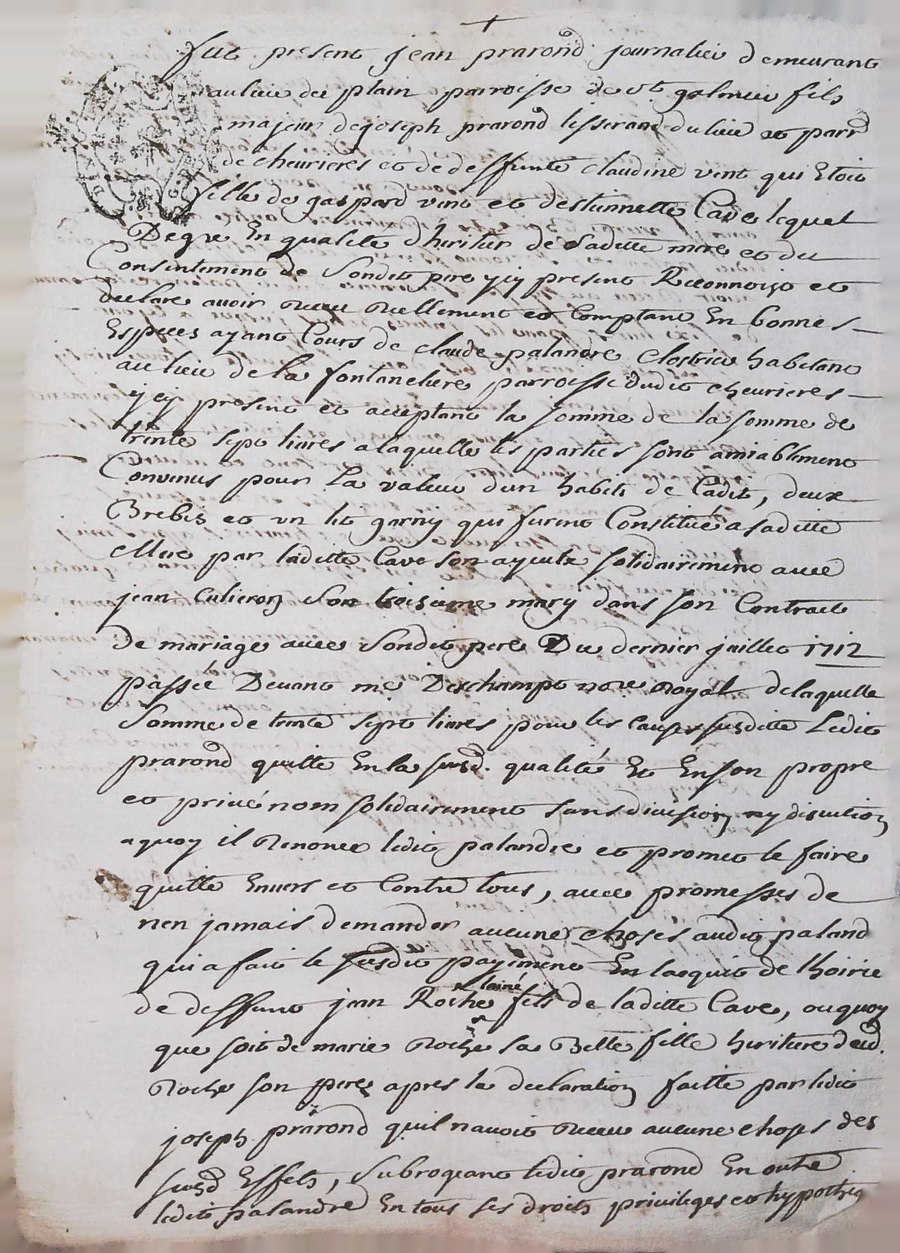 fut present jean prarond journalier demeurant
au lieu du plain parroisse de st galmier fils
majeur de joseph prarond tisserand du lieu et parr
de cheurieres et de deffunte claudine vint qui Etoit
fille de gaspard vint et destiennette Cave lequel
Degré En qualité d'heritier de saditte mere et du
Consentement de sondit pere y cy present Reconnoist et
declare avoir receu reellement et Comptant En bonnes
Especes ayant Cours de claude palandre Clostrier habitant
au lieu de la fontaneliere parroisse dudit cheurieres
y cy present et aceptant la somme de la somme de
trente sept livres a laquelle les parties sont amiablement
Convenus pour la valeur d'un habit de Cadit, deux
Brebis et un lit garny qui furent Constitué a saditte
mere par laditte Cave son ayeule solidairement avec
jean son troisieme mary dans son Contract
de mariage avec sondit pere Du dernier juillet 1712
passée Devant me Deschamps nore royal de laquelle
somme de trente sept livres pour les causes susditte Ledit
prarond quitte En la susd. qualité Et En son propre
et privé nom solidairement sans division ny discution
a quoy il Renonce ledit palandre et promet le faire
quitte Envers et Contre tous, avec promesses de
nen jamais demander aucune choses audit paland
qui a fait le susdit payement En lacquit de lhoirie
de deffunt jean Roche laine fils de laditte Cave, ou quoy
que soit de marie Roche sa Belle fille heritiere dud.
Roche son pere apres la declaration faitte par ledit
joseph prarond quil navoit receu aucune choses des
susd Effets, subrogeant ledit prarond En outre
ledit palandre En tous ses droits privileges et hypotheq